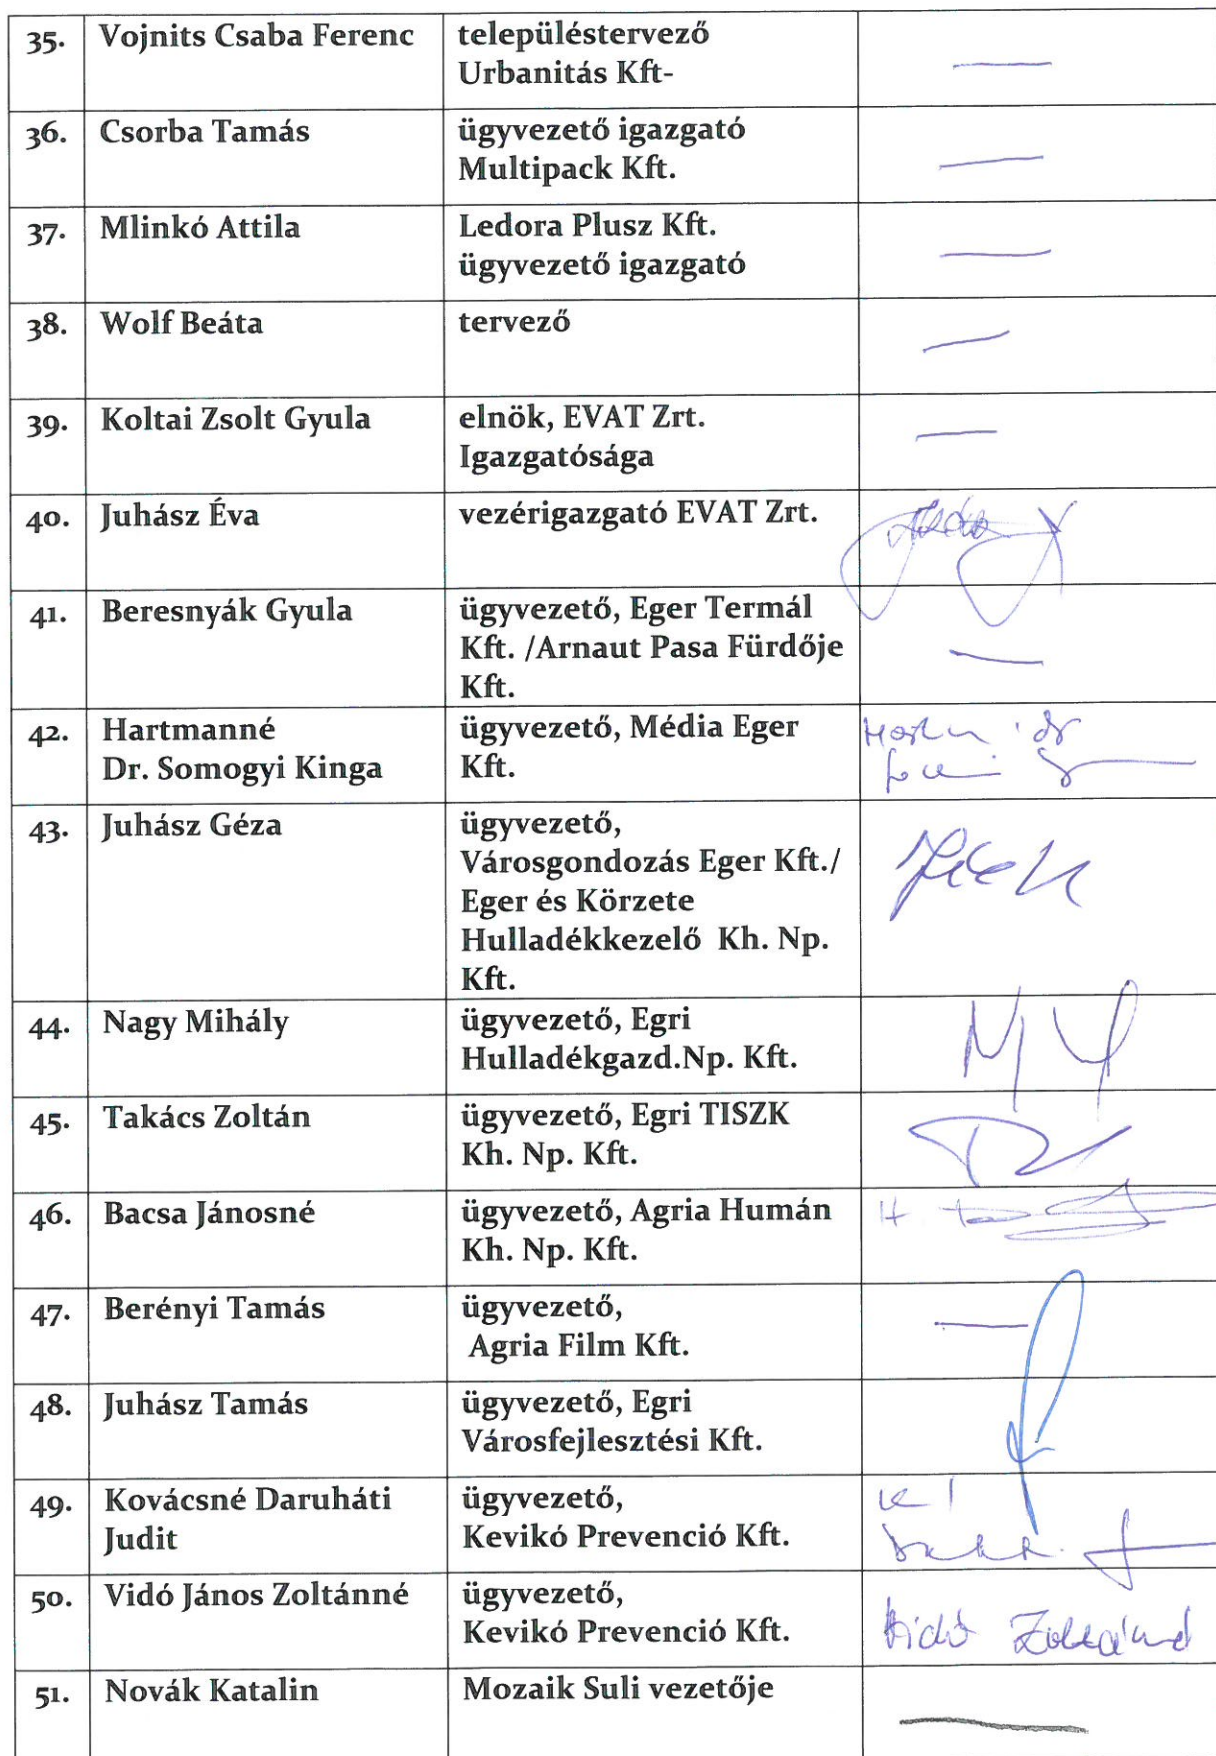 35. Vojnits Csaba Ferenc településtervező
Urbanitás Kft-
36. Csorba Tamás ügyvezető igazgató
Multipack Kft.
37. Mlinkó Attila Ledora Plusz Kft.
ügyvezető igazgató
38. Wolf Beáta tervező
39. Koltai Zsolt Gyula elnök, EVAT Zrt.
Igazgatósága
40. Juhász Éva vezérigazgató EVAT Zrt.
41. Beresnyák Gyula ügyvezető, Eger Termál
Kft. /Arnaut Pasa Fürdője
Kft.
42. Hartmanné ügyvezető, Média Eger
Dr. Somogyi Kinga Kft.
43. Juhász Géza ügyvezető,
Városgondozás Eger Kft./
Eger és Körzete
Hulladékkezelő Kh. Np.
Kft.
44. Nagy Mihály ügyvezető, Egri
Hulladékgazd.Np. Kft.
45. Takács Zoltán ügyvezető, Egri TISZK
Kh. Np. Kft.
46. Bacsa Jánosné ügyvezető, Agria Humán
Kh. Np. Kft.
47. Berényi Tamás ügyvezető,
Agria Film Kft.
48. Juhász Tamás ügyvezető, Egri
Városfejlesztési Kft.
49. Kovácsné Daruháti ügyvezető,
Judit Kevikó Prevenció Kft.
50. Vidó János Zoltánné ügyvezető,
Kevikó Prevenció Kft. Vidó Zoltánné
51. Novák Katalin Mozaik Suli vezetője